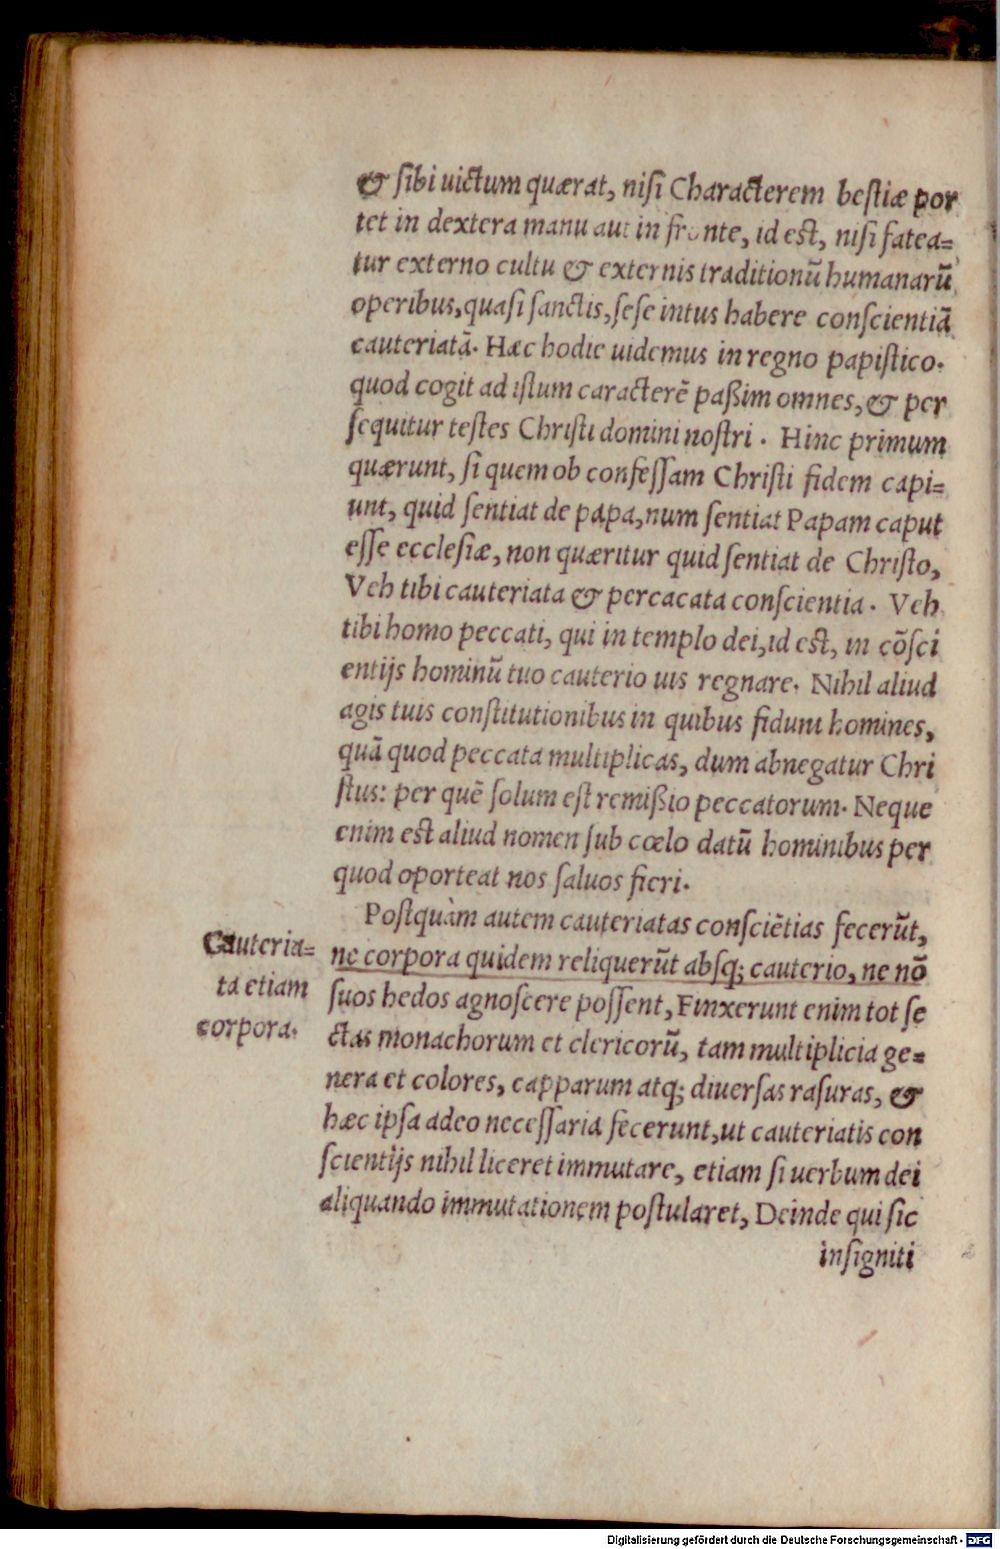 & ſibi uictum quærat, niſi Characterem beſtiæ por
tet in dextera manu aut in fronte, id eſt, niſi fatea=
tur externo cultu & externis traditionū humanarū
operibus, quaſi ſanctis, ſeſe intus habere conſcientiā
cauteriatā. Hæc hodie uidemus in regno papiſtico.
quod cogit ad iſtum caracterē paßim omnes, & per
ſequitur teſtes Chriſti domini noſtri. Hinc primum
quærunt, ſi quem ob confeſſam Chriſti fidem capi=
unt, quid ſentiat de papa, num ſentiat Papam caput
eſſe eccleſiæ, non quæritur quid ſentiat de Chriſto,
Veh tibi cauteriata & percacata conſcientia. Veh
tibi homo peccati, qui in templo dei, id eſt, in cōſci
entijs hominū tuo cauterio uis regnare. Nihil aliud
agis tuis conſtitutionibus in quibus fidunt homines,
quā quod peccata multiplicas, dum abnegatur Chri
ſtus: per quē ſolum eſt remißio peccatorum. Neque
enim eſt aliud nomen ſub cœlo datū hominibus per
quod oporteat nos ſaluos fieri.
Poſtquàm autem cauteriatas conſciētias fecerūt,
Cauteria=
ta etiam
corpora.
ne corpora quidem reliquerūt abſq; cauterio, ne nō
ſuos hedos agnoſcere poſſent, Finxerunt enim tot ſe
ctas monachorum et clericorū, tam multiplicia ge=
nera et colores, capparum atq; diuerſas raſuras, &
hæc ipſa adeo neceſſaria fecerunt, ut cauteriatis con
ſcientijs nihil liceret immutare, etiam ſi uerbum dei
aliquando immutationem poſtularet, Deinde qui ſic
inſigniti
Digitalisierung gefördert durch die Deutsche Forschungsgemeinschaft - DFG